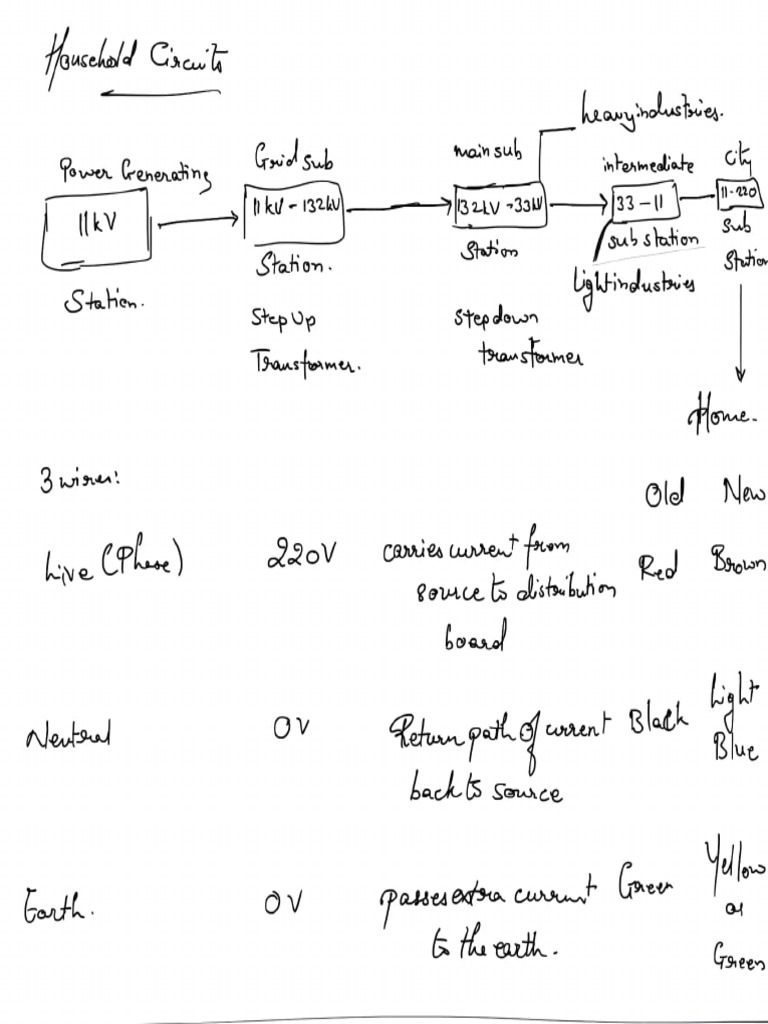 Household Circuits
heavy industries.
Power Generating
Grid sub
main sub
intermediate
City
11kV
11kV - 132kV
132kV - 33kV
33 - 11
11-220
Station.
Station.
Station
substation
Sub
Station
light industries
Step Up
Transformer.
Step down
transformer
Home.
3 wires:
Old New
Live (Phase) 220V carries current from Red Brown
source to distribution
board
Neutral 0V Return path of current Black Light
back to source Blue
Earth. 0V passes extra current Green Yellow
to the earth. or
Green